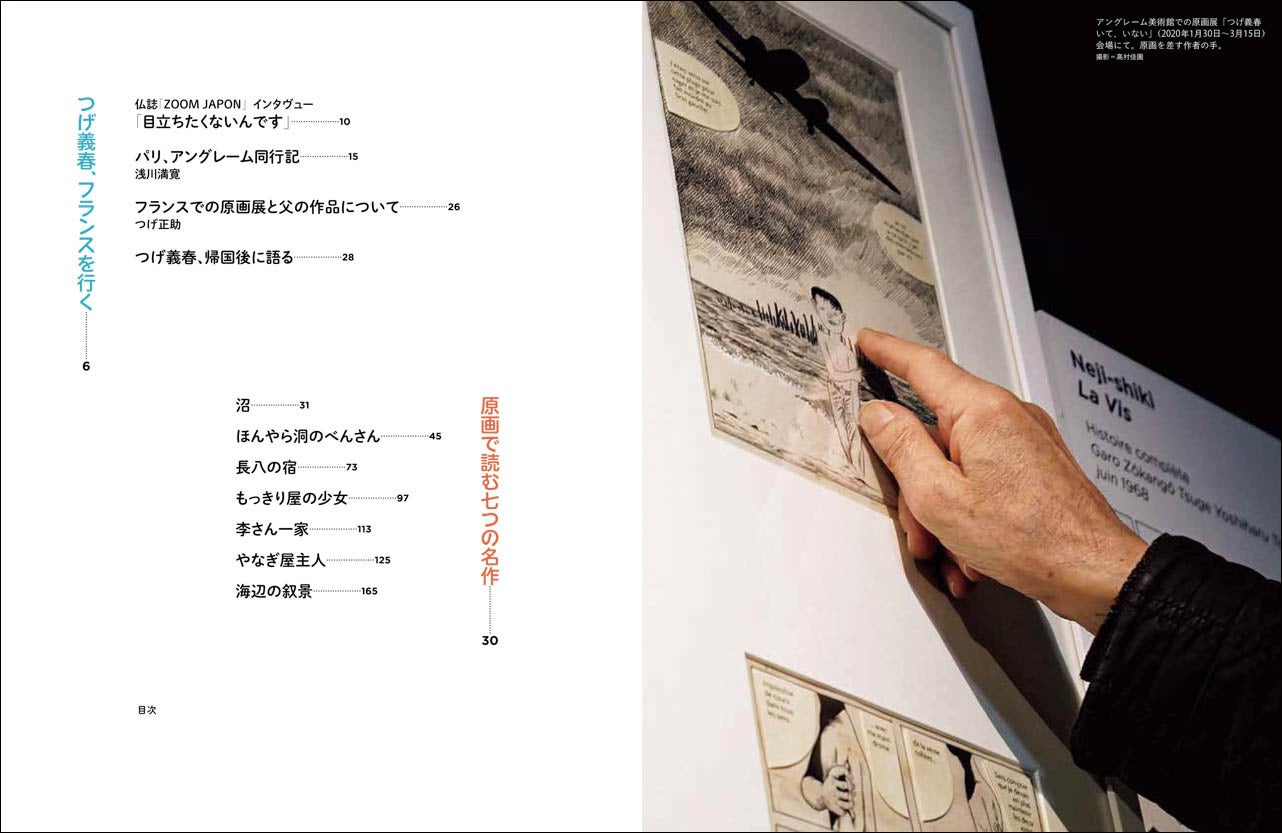 つげ義春、フランスを行く 6
仏誌「ZOOM JAPON」 インタヴュー
「目立ちたくないんです」 10
パリ、アングレーム同行記 15
浅川満寛
フランスでの原画展と父の作品について 26
つげ正助
つげ義春、帰国後に語る 28
原画で読む七つの名作 30
沼 31
ほんやら洞のべんさん 45
長八の宿 73
もっきり屋の少女 97
李さん一家 113
やなぎ屋主人 125
海辺の叙景 165
目次
アングレーム美術館での原画展「つげ義春
いて、いない」(2020年1月30日〜3月15日)
会場にて。原画を差す作者の手。
撮影=高村佳園
Neji-shiki
La Vis
Histoire complète
Garo Zôkangô Tsuge Yoshiharu
juin 1968
Impossible
de courir
dans tous
les sens,
...avec
ma main
droite
de la veine
coupée...
Sans compter
que je devais
en plus
maintenir
les deux